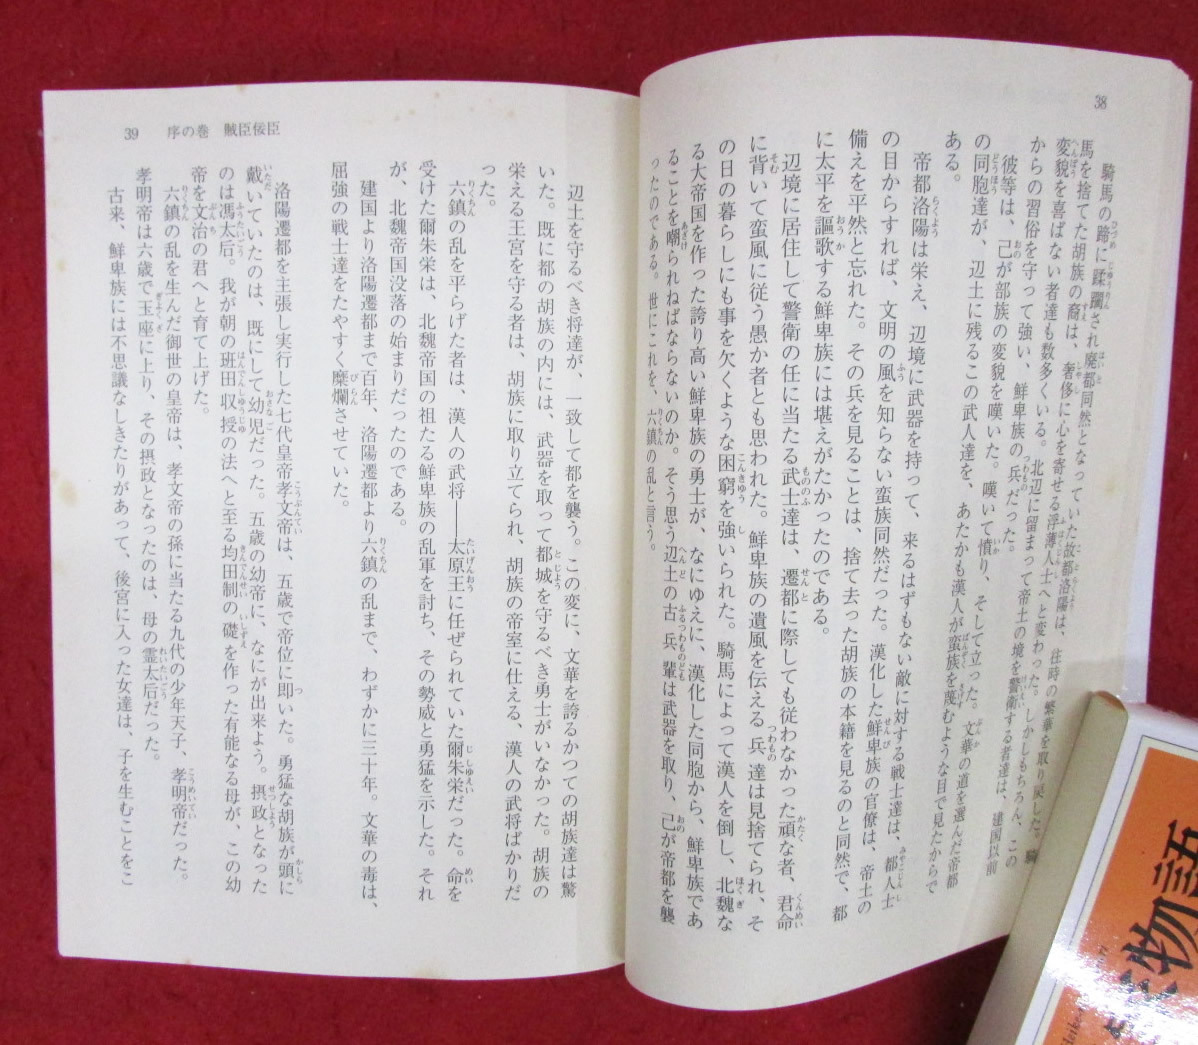 38
騎馬の蹄に蹂躙され廃都同然となっていた故都洛陽は、往時の繁華を取り戻した。騎
馬を捨てた胡族の裔は、奢侈に心を寄せる浮薄人士へと変わった。しかしもちろん、この
変貌を喜ばない者達も数多くいる。北辺に留まって帝土の境を警衛する者達は、建国以前
からの習俗を守って強い、鮮卑族の兵だった。
彼等は、己が部族の変貌を嘆いた。嘆いて憤り、そして立った。文華の道を選んだ帝都
の同胞達が、辺土に残るこの武人達を、あたかも漢人が蛮族を蔑むような目で見たからで
ある。
帝都洛陽は栄え、辺境に武器を持って、来るはずもない敵に対する戦士達は、都人士
の目からすれば、文明の風を知らない蛮族同然だった。漢化した鮮卑族の官僚は、帝土の
備えを平然と忘れた。その兵を見ることは、捨て去った胡族の本籍を見るのと同然で、都
に太平を謳歌する鮮卑族には堪えがたかったのである。
辺境に居住して警衛の任に当たる武士達は、遷都に際しても従わなかった頑な者、君命
に背いて蛮風に従う愚か者とも思われた。鮮卑族の遺風を伝える兵達は見捨てられ、そ
の日の暮らしにも事を欠くような困窮を強いられた。騎馬によって漢人を倒し、北魏な
る大帝国を作った誇り高い鮮卑族の勇士が、なにゆえに、漢化した同胞から、鮮卑族であ
ることを嘲られねばならないのか。そう思う辺土の古兵輩は武器を取り、己が帝都を襲
ったのである。世にこれを、六鎮の乱と言う。
39 序の巻 賊臣佞臣
辺土を守るべき将達が、一致して都を襲う。この変に、文華を誇るかつての胡族達は驚
いた。既に都の胡族の内には、武器を取って都城を守るべき勇士がいなかった。胡族の
栄える王宮を守る者は、胡族に取り立てられ、胡族の帝室に仕える、漢人の武将ばかりだ
った。
六鎮の乱を平らげた者は、漢人の武将――太原王に任ぜられていた爾朱栄だった。命を
受けた爾朱栄は、北魏帝国の祖たる鮮卑族の乱軍を討ち、その勢威と勇猛を示した。それ
が、北魏帝国没落の始まりだったのである。
建国より洛陽遷都まで百年、洛陽遷都より六鎮の乱まで、わずかに三十年。文華の毒は、
屈強の戦士達をたやすく糜爛させていた。
洛陽遷都を主張し実行した七代皇帝孝文帝は、五歳で帝位に即いた。勇猛な胡族が頭に
戴いていたのは、既にして幼児だった。五歳の幼帝に、なにが出来よう。摂政となった
のは馮太后。我が朝の班田収授の法へと至る均田制の礎を作った有能なる母が、この幼
帝を文治の君へと育て上げた。
六鎮の乱を生んだ御世の皇帝は、孝文帝の孫に当たる九代の少年天子、孝明帝だった。
孝明帝は六歳で玉座に上り、その摂政となったのは、母の霊太后だった。
古来、鮮卑族には不思議なしきたりがあって、後宮に入った女達は、子を生むことをこ
物語